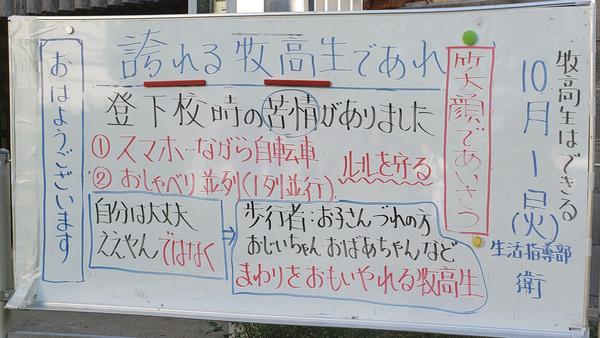 牧高生はできる
10月1日(火)
生活指導部
衛
笑顔であいさつ
誇れる牧高生であれ
登下校時の苦情がありました
① スマホながら自転車
② おしゃべり並列(1列並行)
ルールを守る
自分は大丈夫
ええやんではなく
⇒
歩行者:お子さんづれの方
おじいちゃん おばあちゃんなど
まわりをおもいやれる牧高生
おはようございます